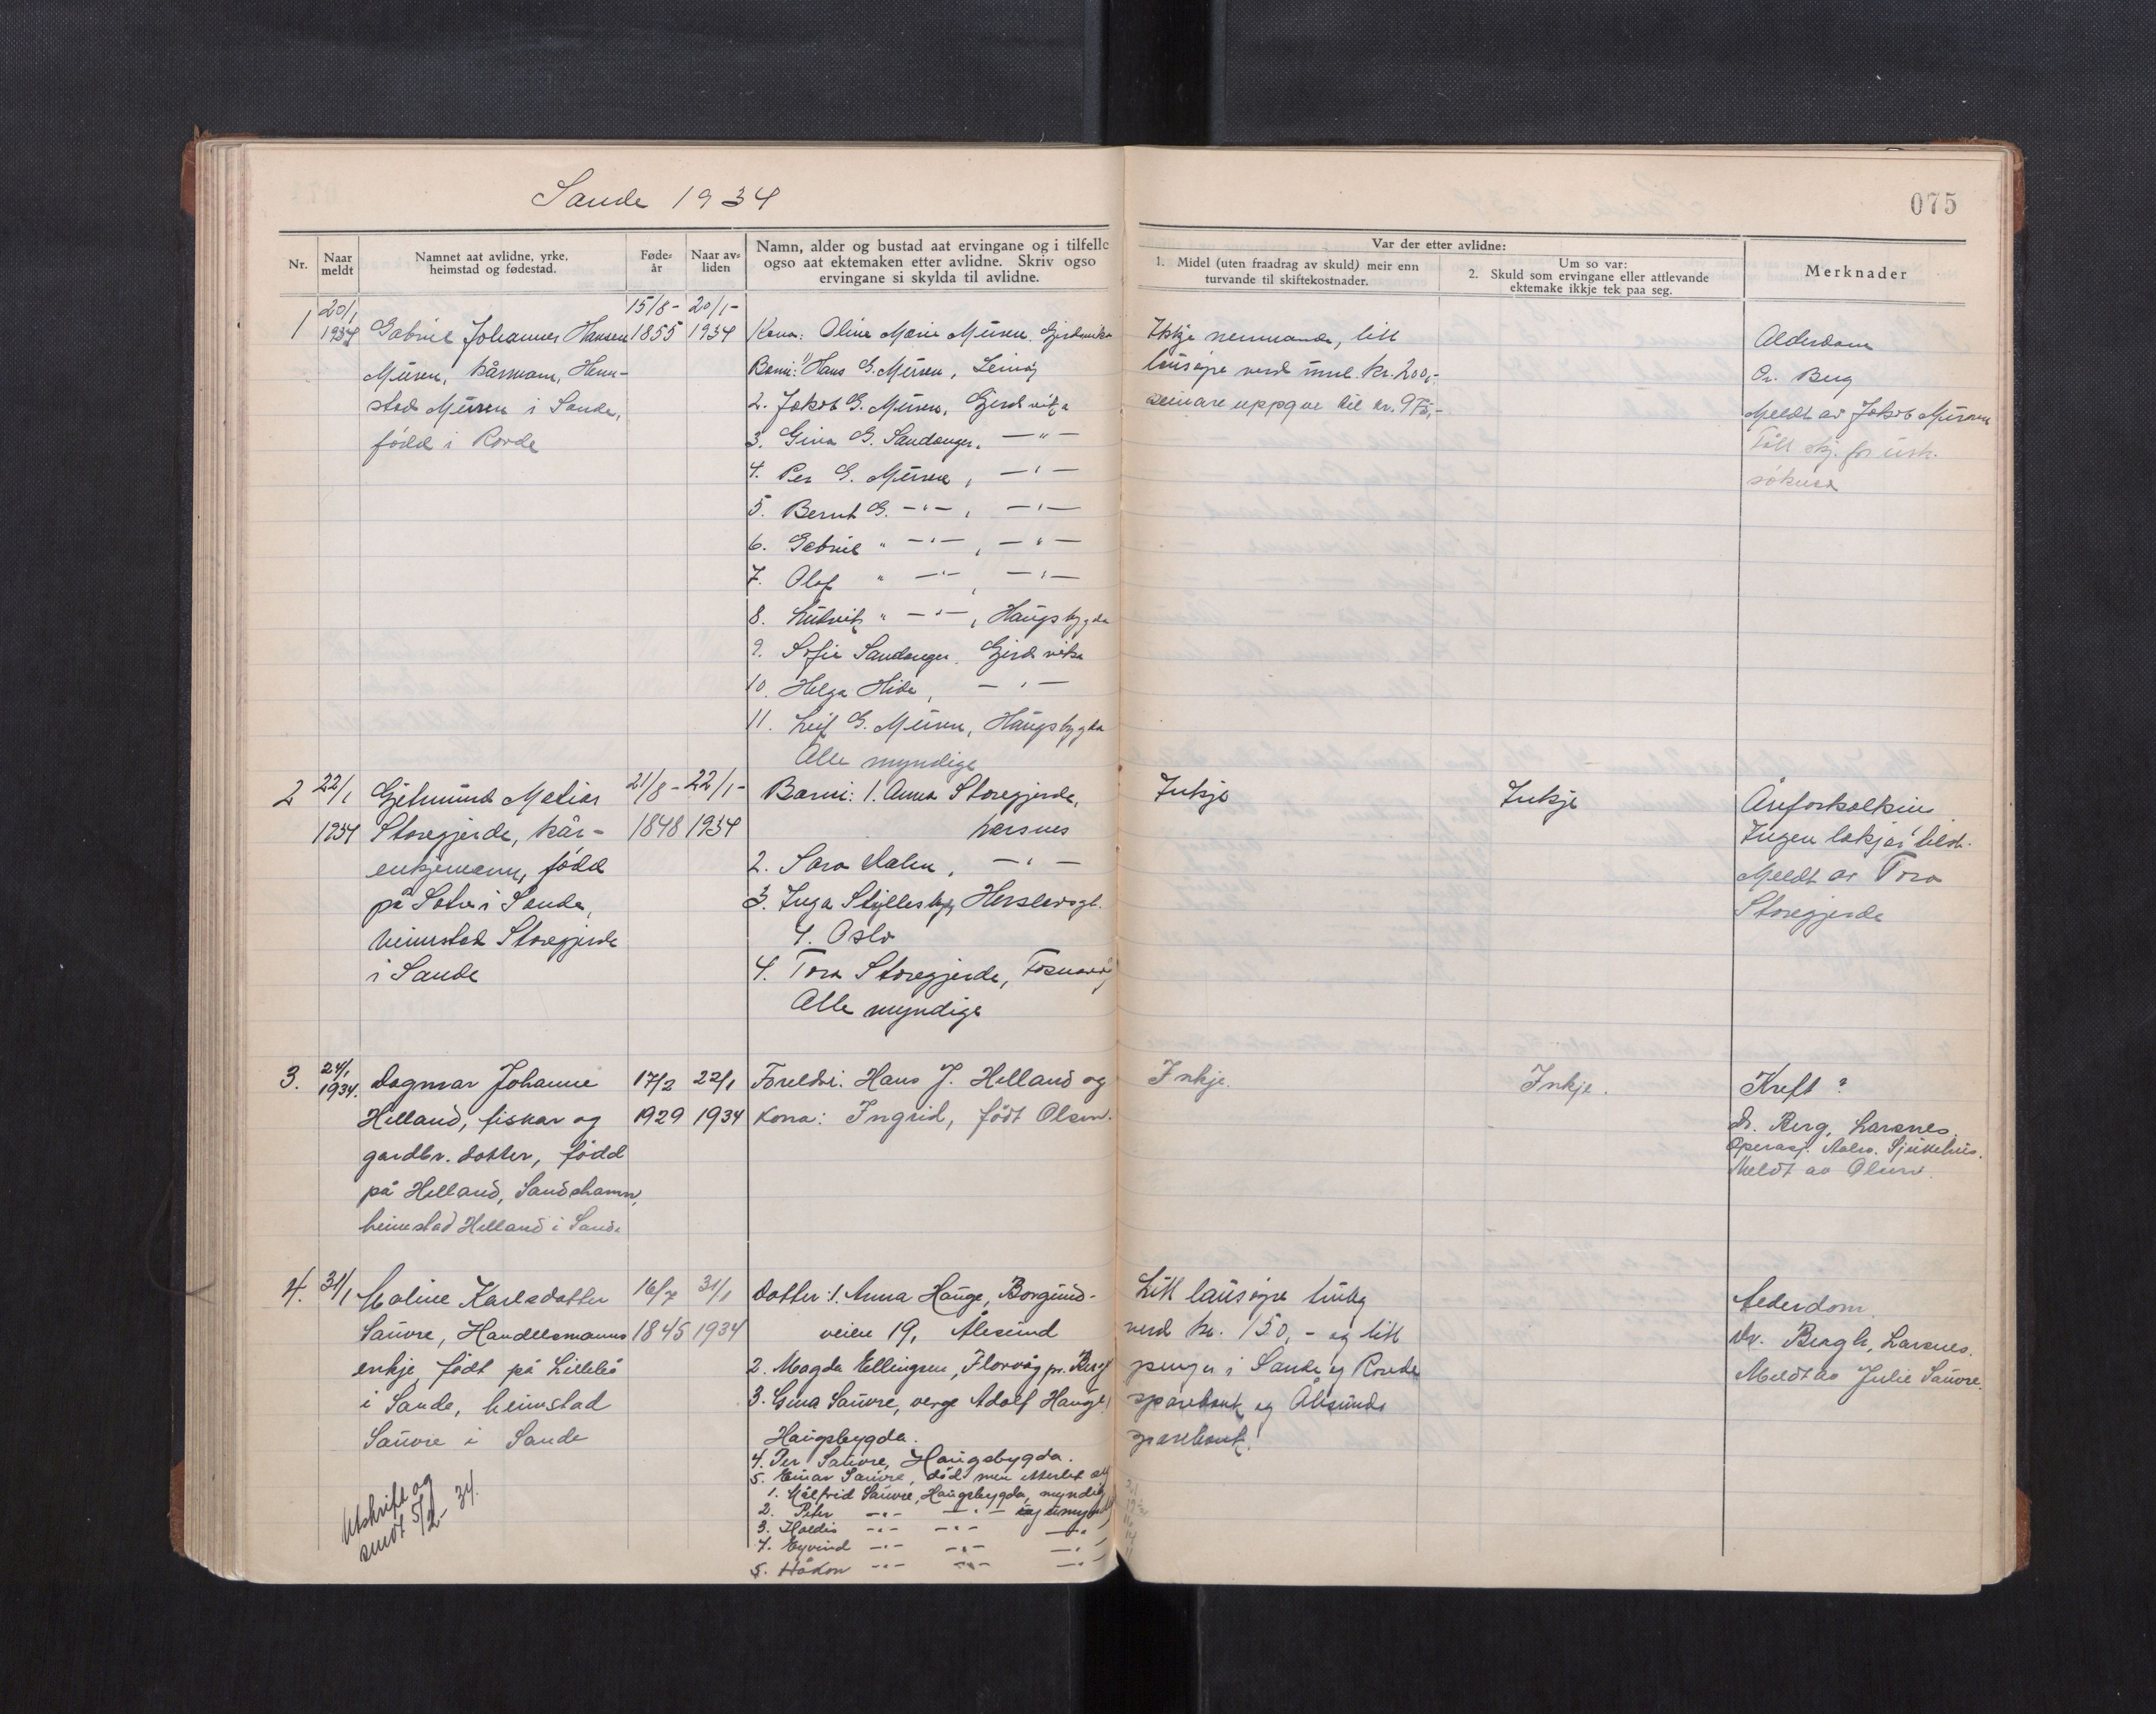 Sande 1934
075
Nr.
Naar meldt
Namnet aat avlidne, yrke, heimstad og fødestad.
Føde-år
Naar av-liden
Namn, alder og bustad aat ervingane og i tilfelle
ogso aat ektemaken etter avlidne. Skriv ogso
ervingane si skylda til avlidne.
Var der etter avlidne:
1. Midel (uten fraadrag av skuld) meir enn
turvande til skiftekostnader.
Um so var:
2. Skuld som ervingane eller attlevande
ektemake ikkje tek paa seg.
Merknader
1 20/1 1934
Gabriel Johannes Hansen
Muren, kårmann, Heim-
stad Muren i Sande,
född i Rovde
15/8-1855
20/1-1934
Kona: Oline Marie Muren, Gjerdsvika
Barn: 1) Hans G. Muren, Leinøy
2. Jakob G. Muren, Gjerdsvika
3. Gina G. Sandanger, —"—
4. Per G. Muren, —"—
5. Bernt G. —"—, —"—
6. Gabriel " —"—, —"—
7. Olaf " —"—, —"—
8. Ludvik " —"—, Haugsbygda
9. Sofie Sandanger, Gjerdsvika
10. Helga Hide, —"—
11. Leif G. Muren, Haugsbygda
Alle myndige
Ikkje nemnande, litt
lausøyre verd kr. 200,-
seinare uppgjeve til kr. 975,-
Alderdom
Dr. Berg
Meldt av Jakob Muren
2 22/1 1934
Gjetmund Matias
Storegjerde, kår-
enkjemann, född
på Sætre i Sande,
heimstad Storegjerde
i Sande
21/8-1848
22/1-1934
Barn: 1. Anna Storegjerde,
Larsnes
2. Sara Dalen, —"—
3. Inga Styllesby, Herslevsgt.
4. Oslo
4. Tora Storegjerde, Fosnavåg
Alle myndige
Inkje
Inkje
Åreforkalkin
Ingen lækjar tilst.
Meldt av Tora
Storegjerde
3. 24/1 1934.
Dagmar Johanne
Helland, fiskar og
gardbr. dotter, född
på Helland, Sandshamn,
heimstad Helland i Sande
17/2 1929
22/1 1934
Foreldri: Hans J. Helland og
kona: Ingrid, födt Olsen.
Inkje.
Inkje.
Kreft?
dr. Berg, Larsnes.
Operasj. Aales. Sjukehus.
Meldt av Olsen.
4. 31/1
Maline Karlsdotter
Sauvre, Handelsmanns
enkje, födt på Lillebö
i Sande, heimstad
Sauvre i Sande
16/7 1845
31/1 1934
Dotter: 1. Anna Hauge, Borgund-
veien 19, Ålesund
2. Magda Ellingsen, Florvåg pr. Bergen
3. Gina Sauvre, verge Adolf Hauge,
Haugsbygda.
4. Per Sauvre, Haugsbygda.
5. Einar Sauvre, død men etterlet seg
1. Målfrid Sauvre, Haugsbygda, myndig
2. Peter —"— —"— umyndig
3. Haldis —"— —"— —"—
4. Eyvind —"— —"— —"—
5. Håkon —"— —"— —"—
Litt lausøyre
verd kr. 150,- og litt
pengar i Sande og Rovde
sparebank og Ålesunds
sparebank.
Alderdom
Dr. Bergh, Larsnes.
Meldt av Julie Sauvre.
Utskrift og
sendt 5/2-34.